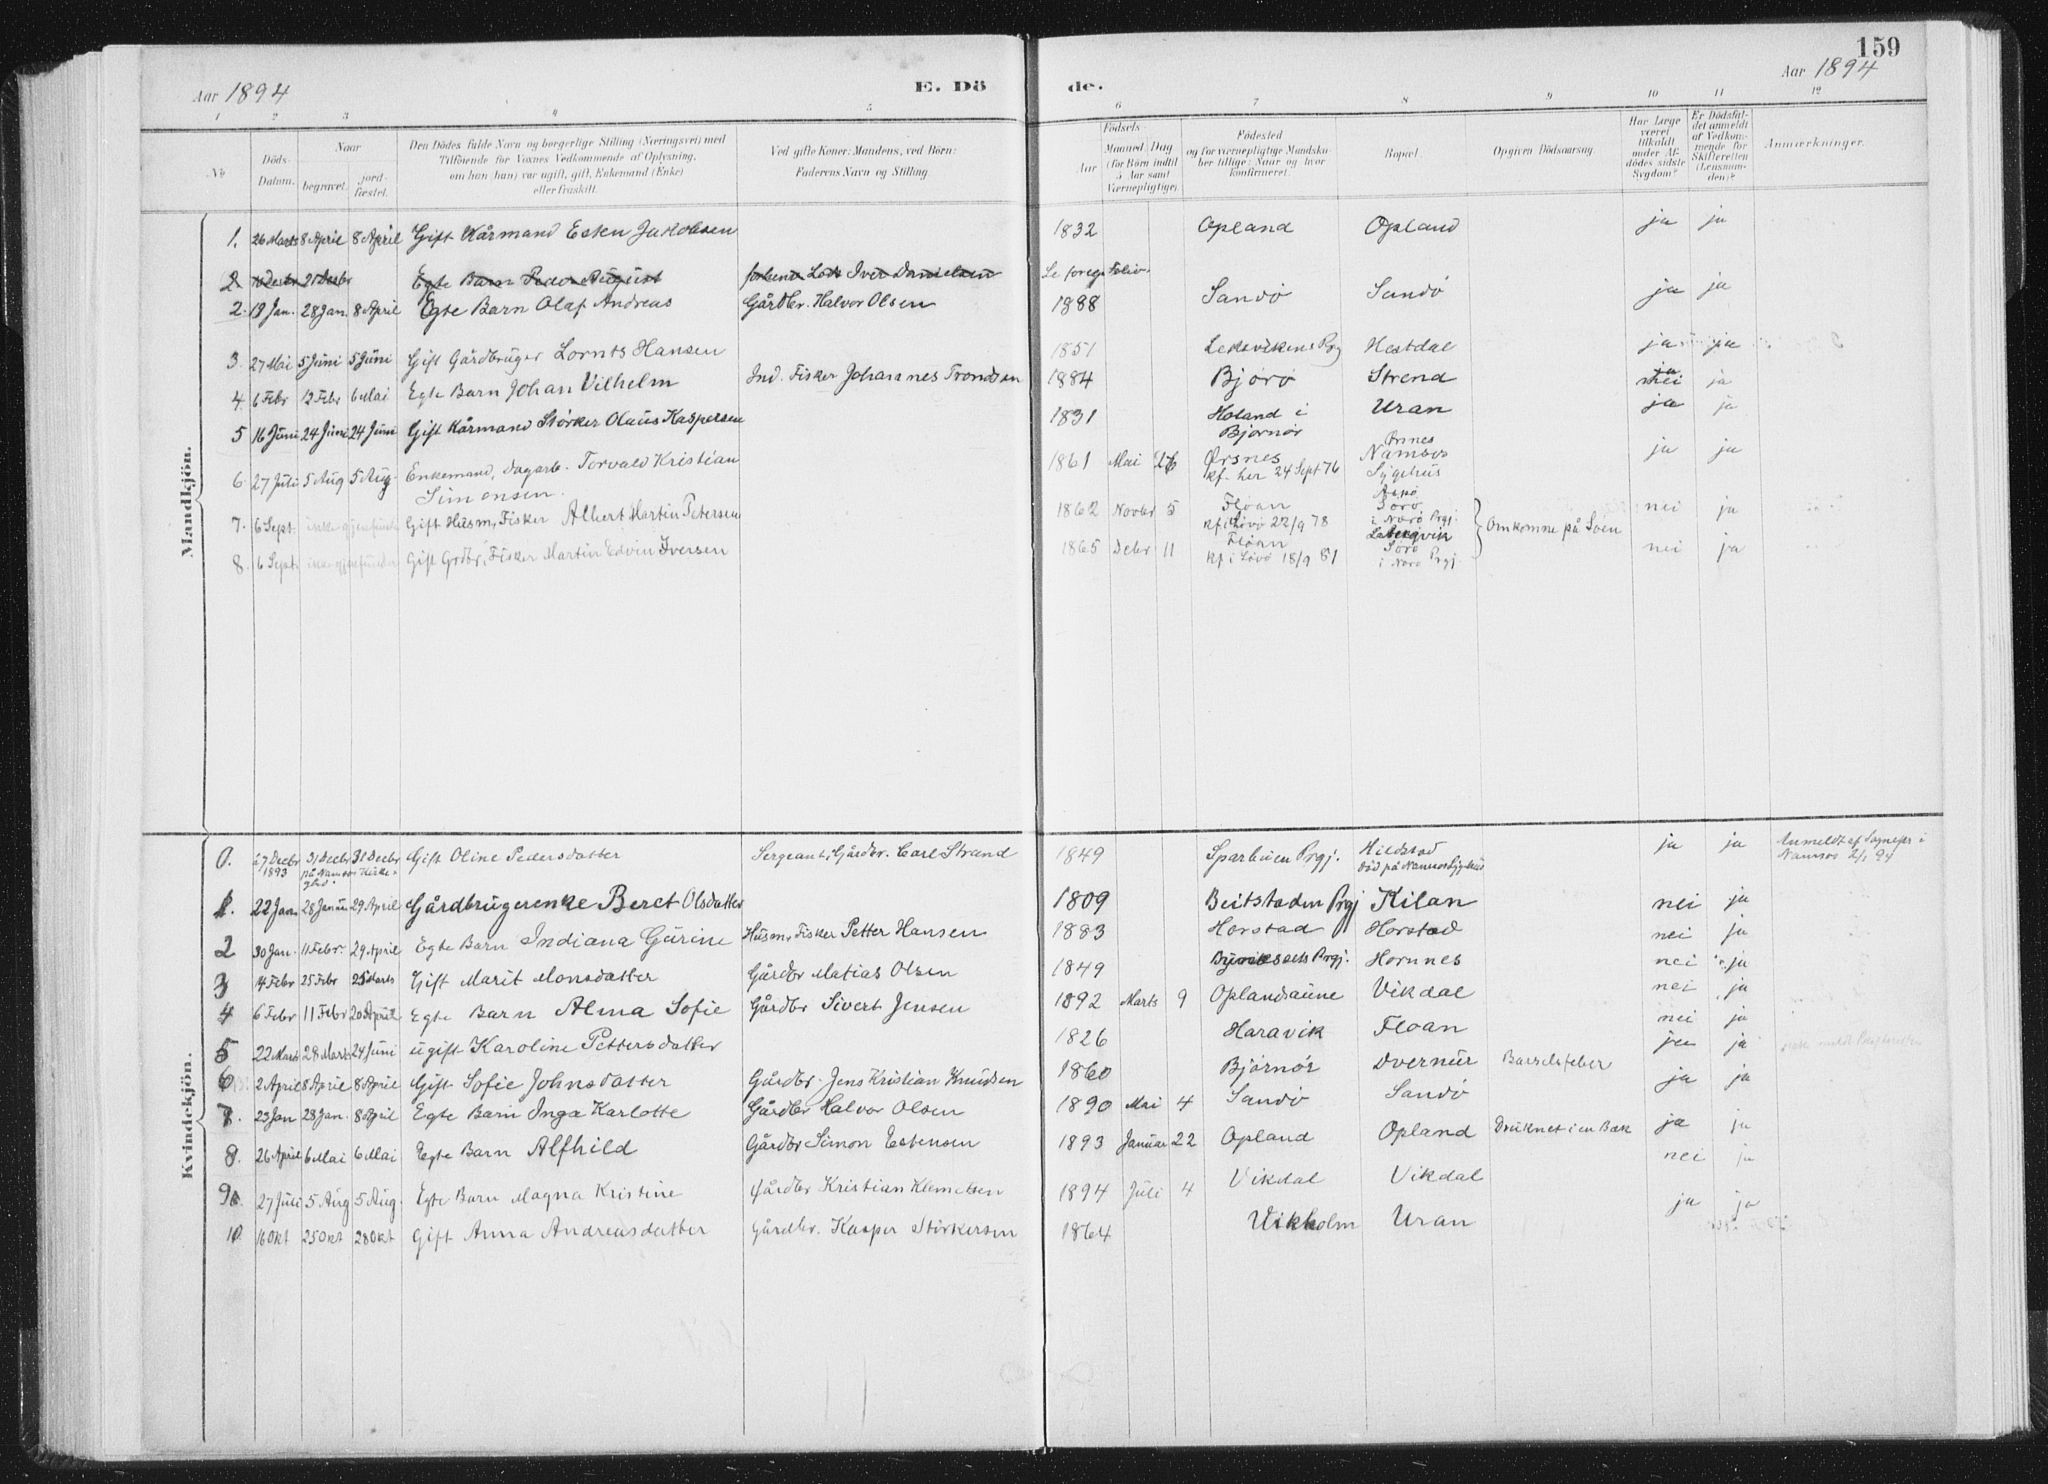 159
Aar 1894 E. Dö de. Aar 1894
1 2 3 4 5 6 7 8 9 10 11 12
No Döds-Datum. Naar begravet. jordfæstet. Den Dödes fulde Navn og borgerlige Stilling (Næringsvei) med Tilföiende for Voxnes Vedkommende af Oplysning, om han (hun) var ugift, gift, Enkemand (Enke) eller fraskilt. Ved gifte Koner: Mandens, ved Börn: Faderens Navn og Stilling. Födsels Aar Maaned Dag (for Börn indtil 5 Aar samt Værnepligtige). Födested og for værnepligtige Mandskaber tillige: Naar og hvor konfirmeret. Bopæl. Opgiven Dödsaarsag. Har Læge været tilkaldt under Afdödes sidste Sygdom? Er Dödsfaldet anmeldt af Vedkommende for Skifteretten (Lensmanden)? Anmærkninger.
Mandkjön.
1. 26 Marts 8 April 8 April Gift Kårmand Esten Jakobsen 1832 Opland Opland ja ja
2 21 Decbr Egte Barn Peder August Iver Danielsen Se foreg Folio
2. 19 Jan. 28 Jan. 8 April Egte Barn Olaf Andreas Gårdbr. Halvor Olsen 1888 Sandö Sandö ja ja
3. 27 Mai 5 Juni 5 Juni Gift Gårdbruger Lornts Hansen 1851 Leksvikens Prg Hestdal ja ja
4. 6 Febr 12 Febr 6 Mai Egte Barn Johan Vilhelm Ind. Fisker Johannes Trondsen 1884 Björö Strend ja nei ja
5 16 Juni 24 Juni 24 Juni Gift Kårmand Störker Olaus Kaspersen 1831 Holand i Bjornör Uran ja ja
6. 27 Juli 5 Aug 5 Aug. Enkemand, dagarb. Torvald Kristian Simonsen. 1861 Mai 26 Örsnes kf. her 24 Sept 76 Namsos Sygehus ja ja
7. 6 Sept. ikke gjenfunden Gift Husm, Fisker Albert Martin Petersen 1862 Novbr 5 Floan kf. i Lövö 22/9 78 Sörö i Narö Prgj. Omkomne på Soen nei ja
8. 6 Sept. ikke gjenfunden Gift Grdbr, Fisker Martin Edvin Iversen 1865 Decbr 11 Floan kf i Lövö 18/9 81 Sörö i Narö Prgj. nei ja
Kvindekjön.
0. 27 Decbr 1893 31 Decbr 31 Decbr på Namsos Kirkegård. Gift Oline Pedersdatter Sergeant, Gårdbr. Carl Strand 1849 Sparbuen Prgj. Hildstad död på Namsos Sygehus ja ja Anmeldt af Sognepr i Namsos 2/1 94
1. 22 Jan 28 Januar 29 April Gårdbrugerenke Beret Olsdatter 1809 Beitstaden Prgj Kilan nei ja
2 30 Jan. 11 Febr. 29 April Egte Barn Indiana Gurine Husm, Fisker Petter Hansen 1883 Horstad Horstad nei ja
3 14 Febr 25 Febr 25 Marts Gift Marit Monsdatter Gårdbr Matias Olsen 1849 Prgj. Hornnes nei ja
4 6 Febr 11 Febr 20 April Egte Barn Alma Sofie Gårdbr Sivert Jensen 1892 Marts 9 Oplandsaune Vikdal nei ja
5 22 Marts 28 Marts 24 Juni ugift Karoline Pettersdatter 1826 Haravik Floan nei ja
6 2 April 8 April 8 April Gift Sofie Johnsdatter Gårdbr. Jens Kristian Knudsen 1860 Björnör Dvernur Barselsfeber ja ja
7. 23 Jan 28 Jan. 8 April Egte Barn Inga Karlotte Gårdbr Halvor Olsen 1890 Mai 4 Sandö Sandö ja ja
8. 26 April 6 Mai 6 Mai Egte Barn Alfhild Gårdbr Simon Estensen 1893 Januar 22 Opland Opland Druknet i en Bæk ja ja
9. 27 Juli 5 Aug 5 Aug. Egte Barn Magna Kristine Gårdbr Kristian Klemetsen 1894 Juli 4 Vikdal Vikdal nei ja
10. 16 Okt 25 Okt 28 Okt Gift Anna Andreasdatter Gårdbr. Kasper Störkersen 1864 Vikholm Uran ja ja